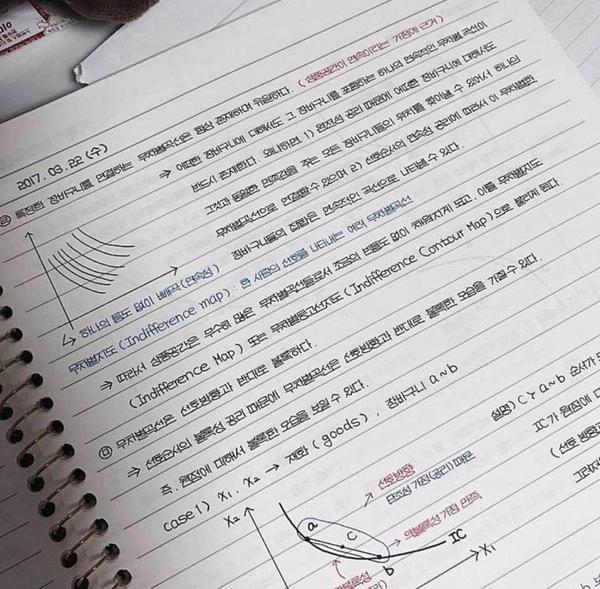 2017. 03. 22 (수)
특정한 장바구니를 연결하는 무차별곡선은 항상 존재하며 유일하다. (상품공간이 연속이라는 가정에 근거)
→ 어떠한 장바구니에 대해서도 그 장바구니를 포함하는 하나의 연속적인 무차별 곡선이
반드시 존재한다. 왜냐하면 1) 완전성 공리 때문에 어떠한 장바구니에 대해서도
그것과 동일한 만족감을 주는 모든 장바구니들의 위치를 찾아낼 수 있어서 하나의
무차별곡선으로 연결할 수 있으며 2) 선호순서의 연속성 공리에 따라서 이 무차별한
장바구니들의 집합은 연속적인 곡선으로 나타낼 수 있다.
↳ 하나의 틈도 없이 빼곡 (연속성)
무차별지도 (Indifference map) : 한 사람의 선호를 나타내는 여러 무차별곡선
→ 따라서 상품공간은 무수히 많은 무차별곡선들로서 조금의 빈틈도 없이 채워지게 되고, 이를 무차별지도
(Indifference Map) 또는 무차별등고선지도 (Indifference Contour Map)으로 불리게 된다.
무차별곡선은 선호방향과 반대로 볼록하다.
→ 선호순서의 볼록성 공리 때문에 무차별곡선은 선호방향과 반대로 볼록한 모습을 가질 수 있다.
즉, 원점에 대해서 볼록한 모습을 보일 수 있다.
case 1) X₁, X₂ → 재화 (goods), 장바구니 a~b
설명) C ≻ a~b 순서가
IC가 원점에
(선호 방향
X₂
선호방향
단조성 가정(공리) 때문
a
c
b
약볼록성 가정 만족
IC
X₁